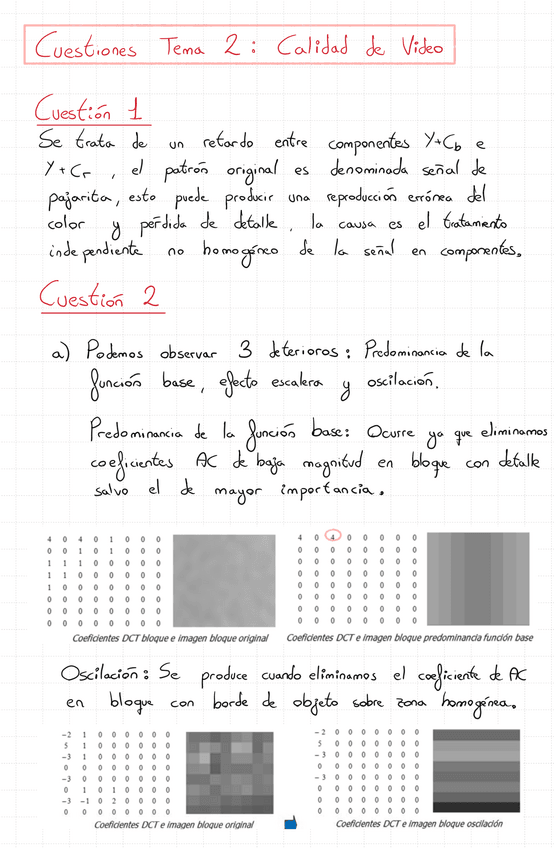 Cuestiones Tema 2: Calidad de Video
Cuestión 1
Se trata de un retardo entre componentes Y+Cb e
Y+Cr, el patrón original es denominada señal de
pajarita, esto puede producir una reproducción errónea del
color y pérdida de detalle, la causa es el tratamiento
independiente no homogéneo de la señal en componentes.
Cuestión 2
a) Podemos observar 3 deterioros: Predominancia de la
función base, efecto escalera y oscilación.
Predominancia de la función base: Ocurre ya que eliminamos
coeficientes AC de baja magnitud en bloque con detalle
salvo el de mayor importancia.
4 0 4 0 1 0 0 0
0 0 1 0 1 0 0 0
1 1 1 0 0 0 0 0
1 1 0 0 0 0 0 0
1 0 0 0 0 0 0 0
0 0 0 0 0 0 0 0
0 0 0 0 0 0 0 0
0 0 0 0 0 0 0 0
Coeficientes DCT bloque e imagen bloque original
4 0 4 0 0 0 0 0
0 0 0 0 0 0 0 0
0 0 0 0 0 0 0 0
0 0 0 0 0 0 0 0
0 0 0 0 0 0 0 0
0 0 0 0 0 0 0 0
0 0 0 0 0 0 0 0
0 0 0 0 0 0 0 0
Coeficientes DCT e imagen bloque predominancia función base
Oscilación: Se produce cuando eliminamos el coeficiente de AC
en bloque con borde de objeto sobre zona homogénea.
-2 1 0 0 0 0 0 0
5 1 0 0 0 0 0 0
-3 1 0 0 0 0 0 0
0 0 0 0 0 0 0 0
-3 0 0 0 0 0 0 0
0 1 0 1 0 0 0 0
-3 -1 0 2 0 0 0 0
0 0 0 0 0 0 0 0
Coeficientes DCT e imagen bloque original
-2 0 0 0 0 0 0 0
5 0 0 0 0 0 0 0
-3 0 0 0 0 0 0 0
0 0 0 0 0 0 0 0
-3 0 0 0 0 0 0 0
0 0 0 0 0 0 0 0
0 0 0 0 0 0 0 0
0 0 0 0 0 0 0 0
Coeficientes DCT e imagen bloque oscilación